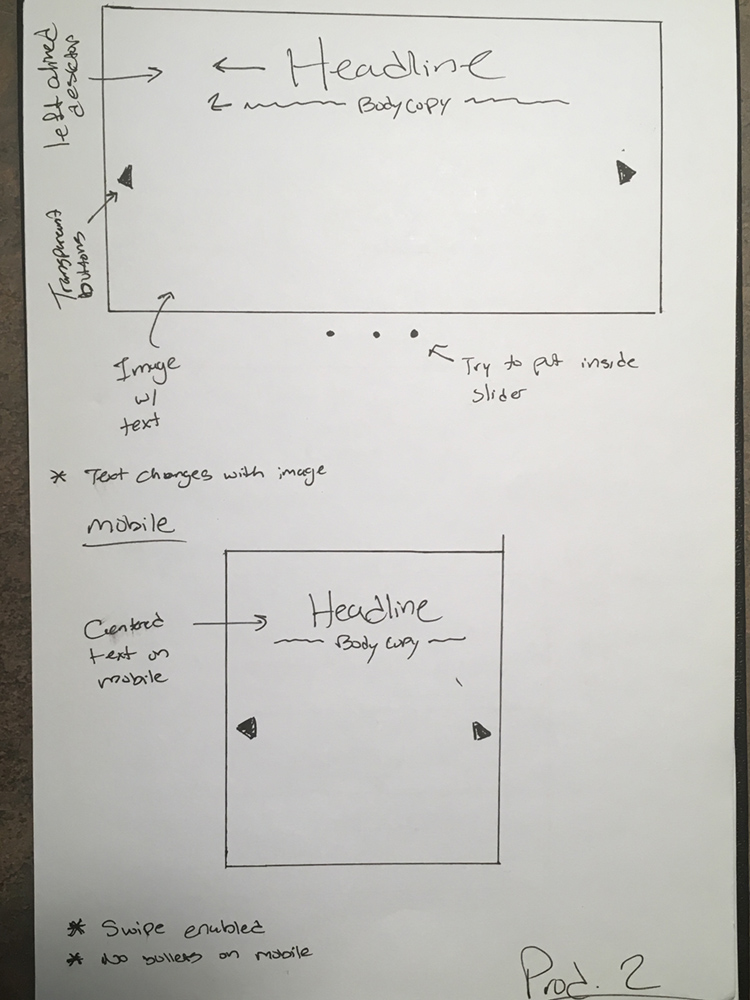 Left alined
desktop
Headline
Bodycopy
Transparent
buttons
Image
w/
text
Try to put inside
slider
* Text changes with image
Mobile
Centered
text on
mobile
Headline
Body copy
* Swipe enabled
* No bullets on mobile
Prod. 2